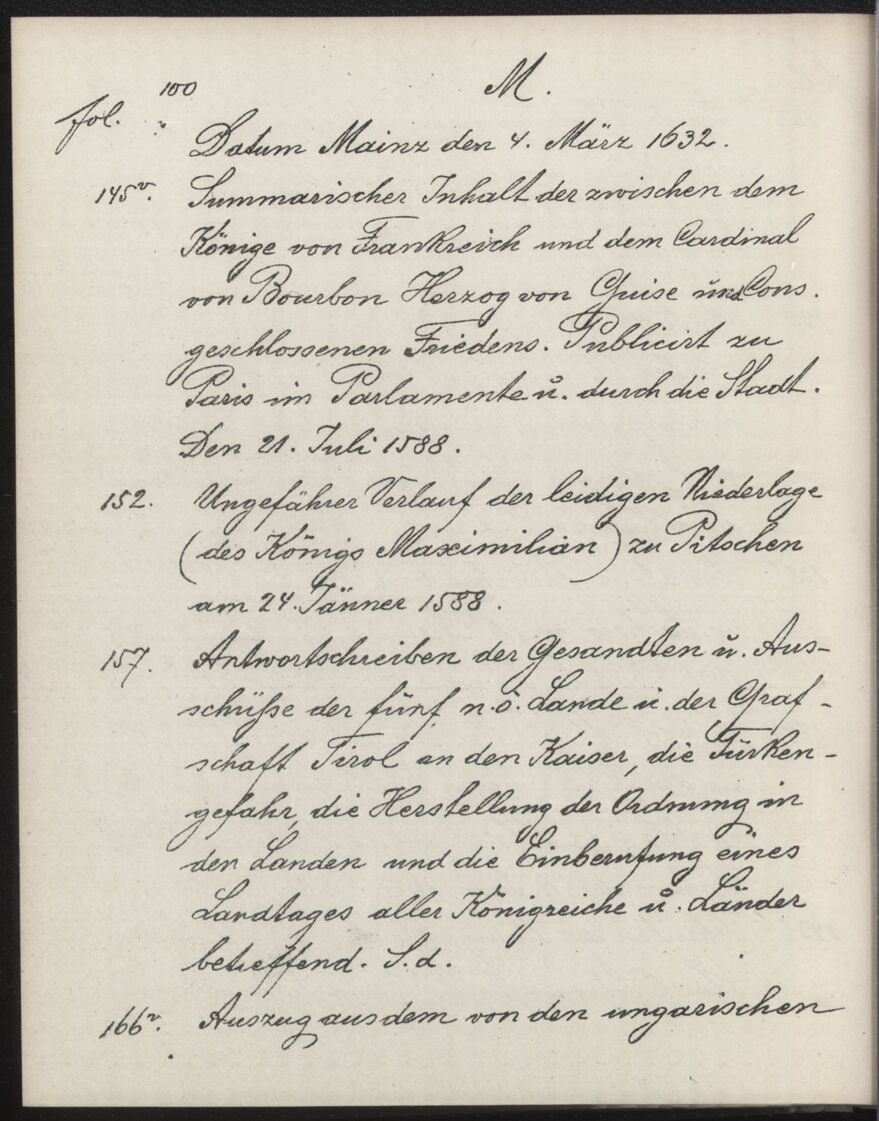 100 M.
fol. "
Datum Mainz den 4. März 1632.
145v. Summarischer Inhalt der zwischen dem
Könige von Frankreich und dem Cardinal
von Bourbon Herzog von Guise und Cons.
geschlossenen Friedens. Publicirt zu
Paris im Parlamente u. durch die Stadt.
Den 21. Juli 1588.
152. Ungefährer Verlauf der leidigen Niederlage
(des Königs Maximilian) zu Pitschen
am 24. Jänner 1588.
157. Antwortschreiben der Gesandten u. Aus-
schüße der fünf n.ö. Lande u. der Graf-
schaft Tirol an den Kaiser, die Türken-
gefahr, die Herstellung der Ordnung in
den Landen und die Einberufung eines
Landtages aller Königreiche u. Länder
betreffend. S.d.
166v. Auszug aus dem von den ungarischen